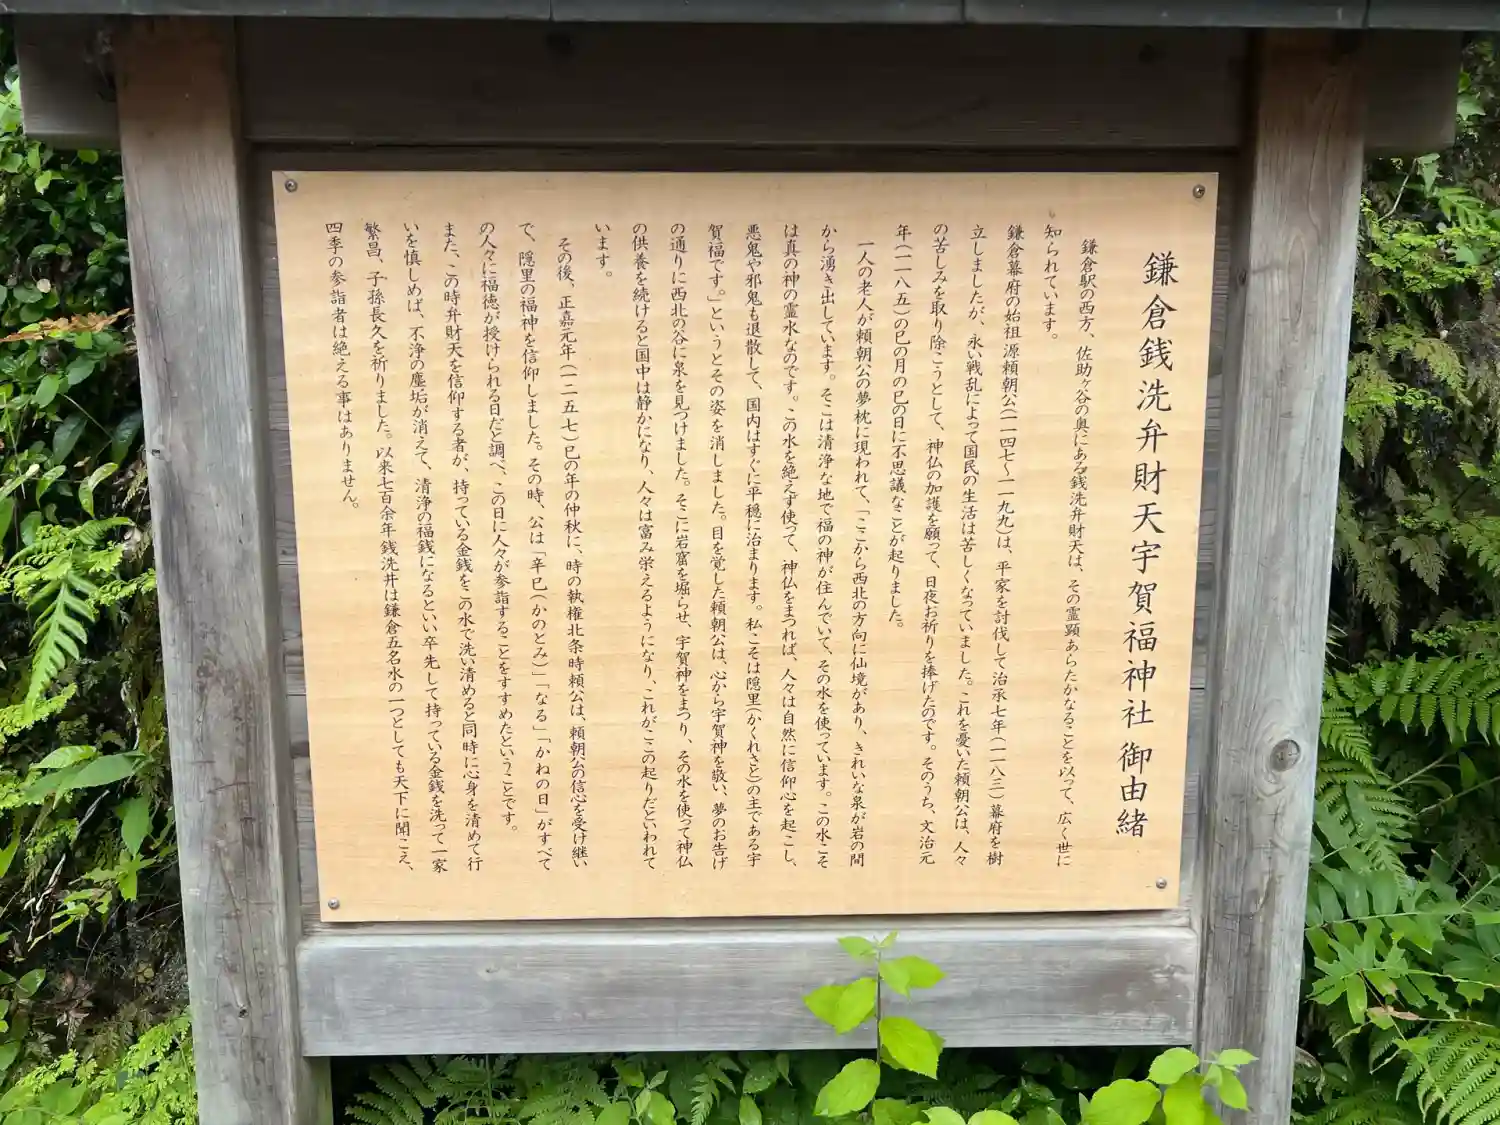 鎌倉銭洗弁財天宇賀福神社御由緒
鎌倉駅の西方、佐助ヶ谷の奥にある銭洗弁財天は、その霊顕あらたかなることを以って、広く世に
知られています。
鎌倉幕府の始祖源頼朝公(一一四七〜一一九九)は、平家を討伐して治承七年(一一八三)幕府を樹
立しましたが、永い戦乱によって国民の生活は苦しくなっていました。これを憂いた頼朝公は、人々
の苦しみを取り除こうとして、神仏の加護を願って、日夜お祈りを捧げたのです。そのうち、文治元
年(一一八五)の巳の月の巳の日に不思議なことが起りました。
一人の老人が頼朝公の夢枕に現われて、「ここから西北の方向に仙境があり、きれいな泉が岩の間
から湧き出しています。そこは清浄な地で福の神が住んでいて、その水を使っています。この水こそ
は真の神の霊水なのです。この水を絶えず使って、神仏をまつれば、人々は自然に信仰心を起こし、
悪鬼や邪鬼も退散して、国内はすぐに平穏に治まります。私こそは隠里(かくれさと)の主である宇
賀福です。」というとその姿を消しました。目を覚した頼朝公は、心から宇賀神を敬い、夢のお告げ
の通りに西北の谷に泉を見つけました。そこに岩窟を堀らせ、宇賀神をまつり、その水を使って神仏
の供養を続けると国中は静かになり、人々は富み栄えるようになり、これがここの起りだといわれて
います。
その後、正嘉元年(一二五七)巳の年の仲秋に、時の執権北条時頼公は、頼朝公の信心を受け継い
で、隠里の福神を信仰しました。その時、公は「辛巳(かのとみ)」「なる」「かねの日」がすべて
の人々に福徳が授けられる日だと調べ、この日に人々が参詣することをすすめたということです。
また、この時弁財天を信仰する者が、持っている金銭をこの水で洗い清めると同時に心身を清めて行
いを慎しめば、不浄の塵垢が消えて、清浄の福銭になるといい卒先して持っている金銭を洗って一家
繁昌、子孫長久を祈りました。以来七百余年銭洗井は鎌倉五名水の一つとしても天下に聞こえ、
四季の参詣者は絶える事はありません。